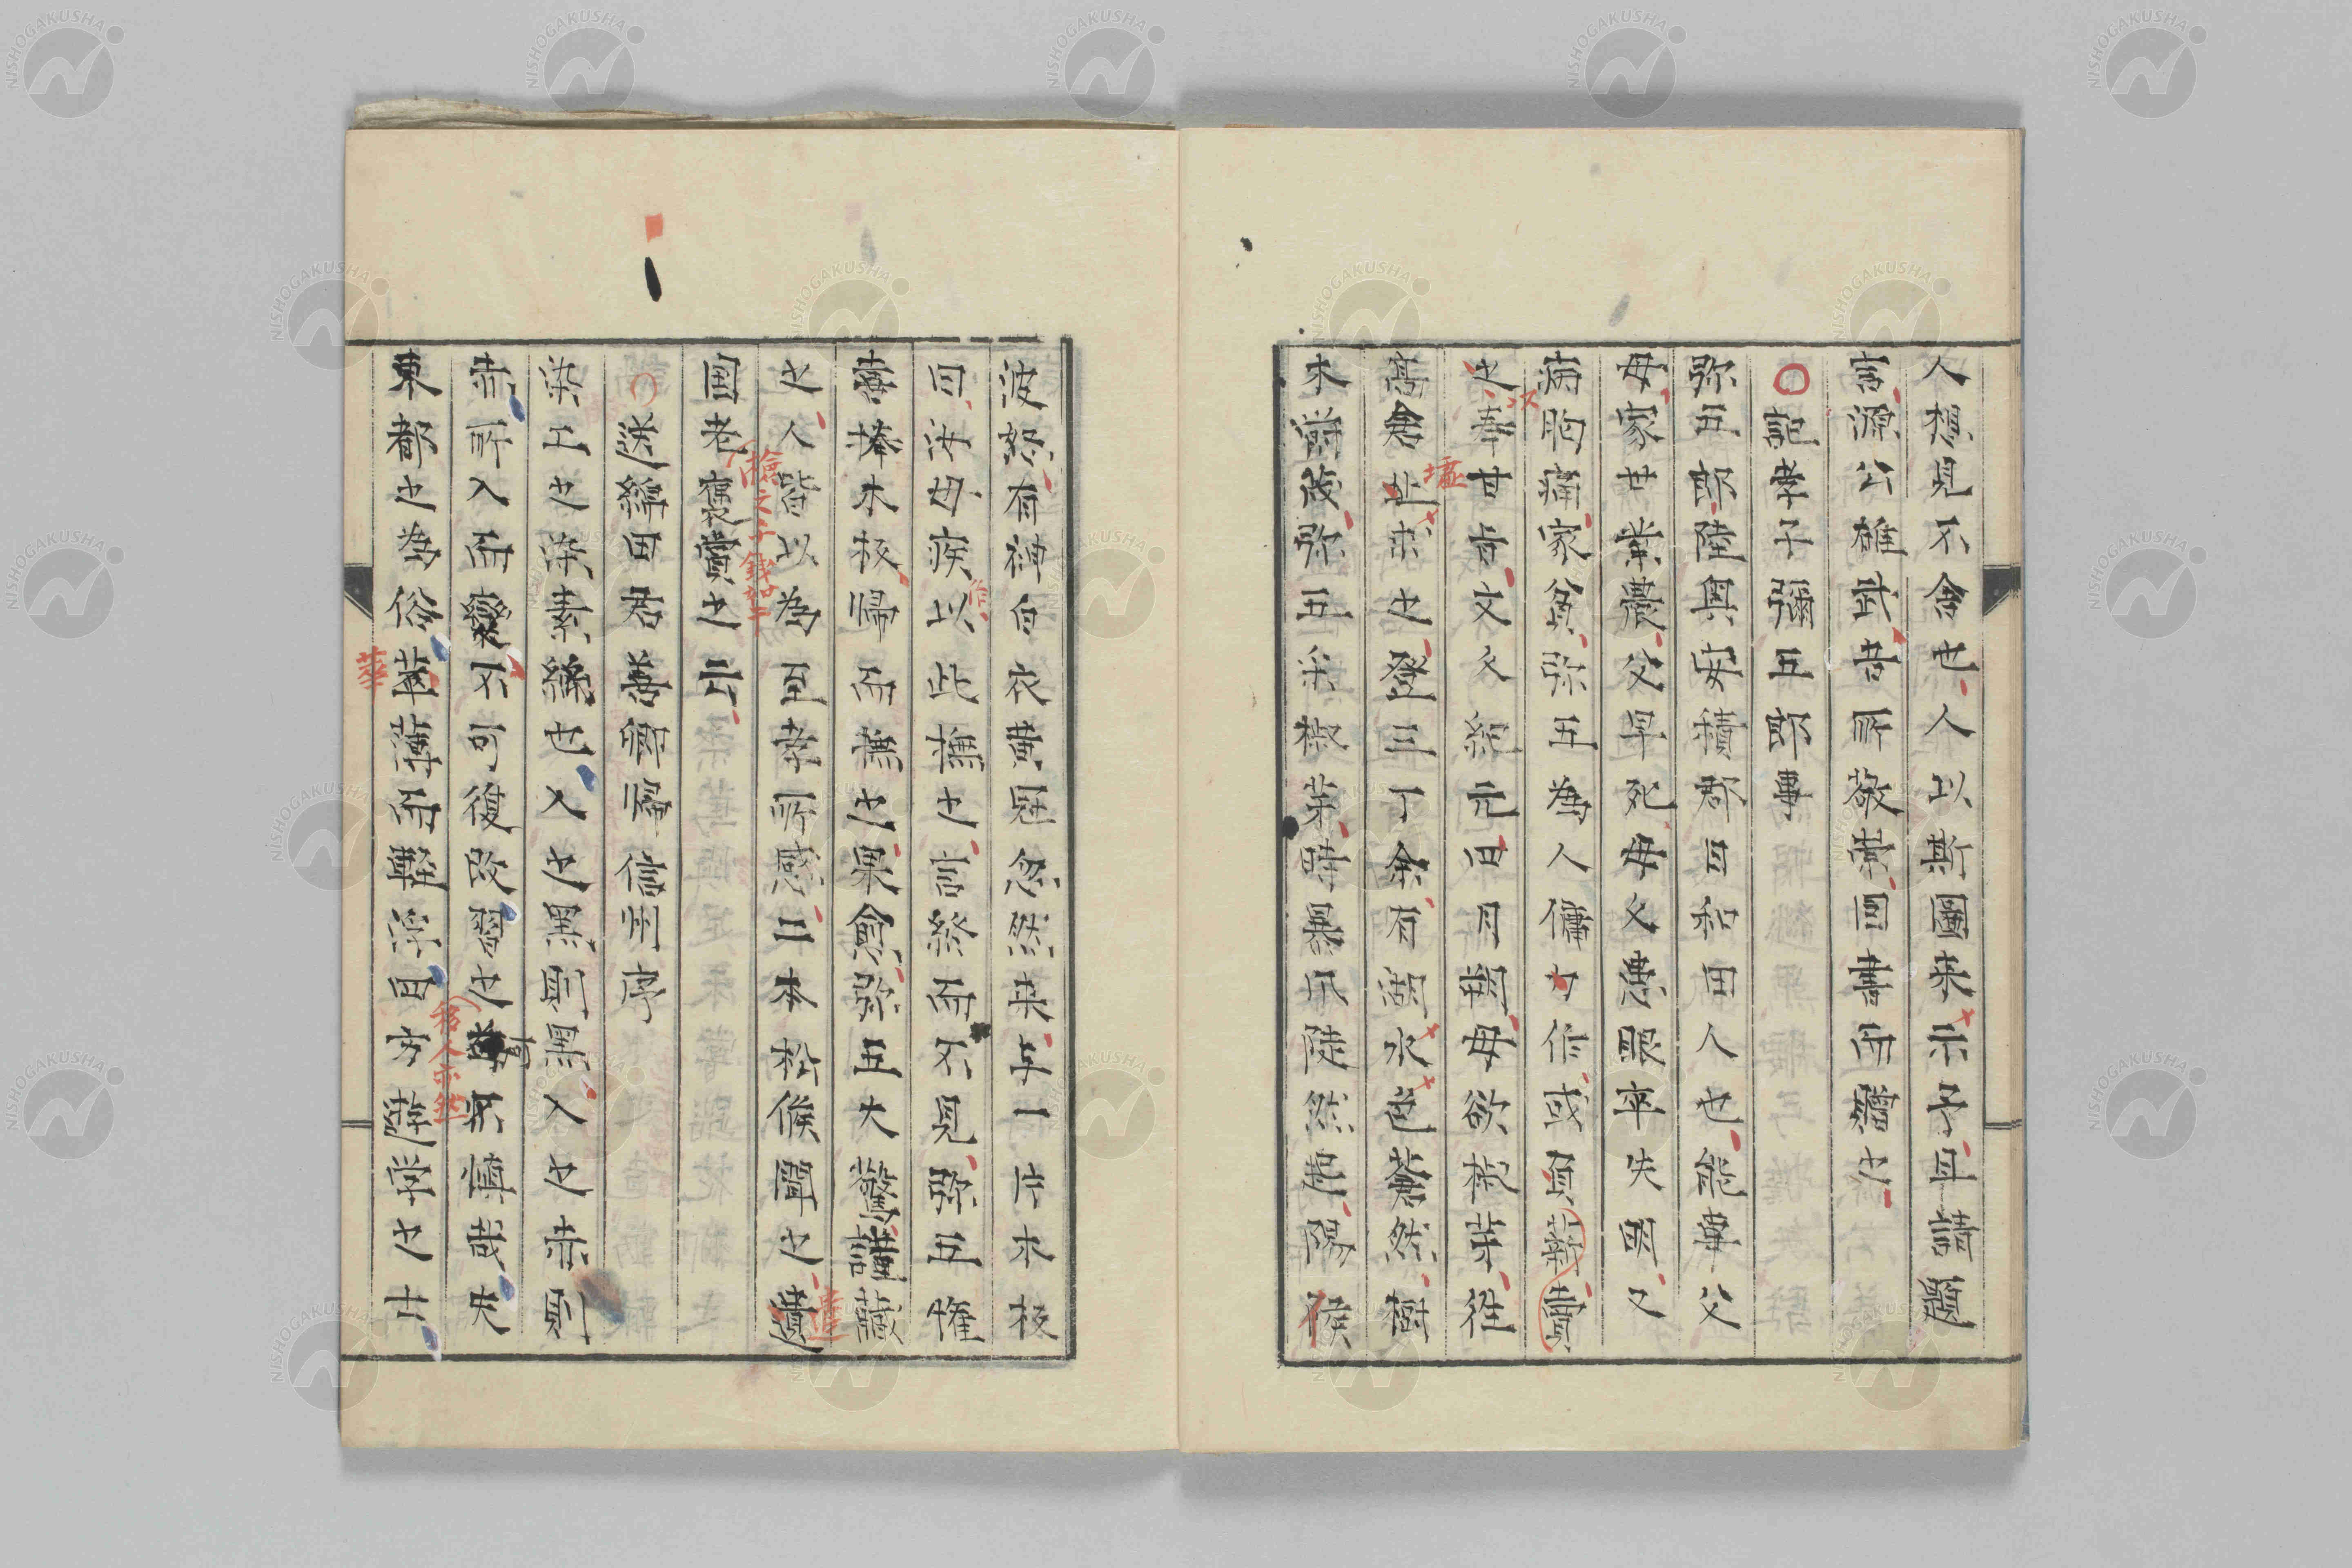 人想見不舎也人以斯圖来示予且請題
言源公雄武吾所敬崇因書而贈之
○記孝子彌五郎事
弥五郎陸奥安積郡日和田人也能事父
母家世業農父早死母久患眼卒失明又
病胸痛家貧弥五為人傭力作或負薪賣
之 文久紀元 月朔母欲 徃
高倉 求之登三丁余有湖水色蒼然樹
墟
木蔚茂弥五采椒菜時暴風陡然起陽候
波怒有神白衣黄冠忽然来与一片木板
曰汝母疾以此撫之言終而不見弥五惶
懼奉木板帰而撫之果愈弥五大驚
之人皆以為至孝所感三春 松侯聞之遣
国老褒賞之云
○送 田君善卿歸信州序
染工之染素絲也入之黒則黒入之赤則
赤所入而變不可復改習之 其 哉夫
東都之為俗華薄而軽浮
華
NISHOGAKUSHA